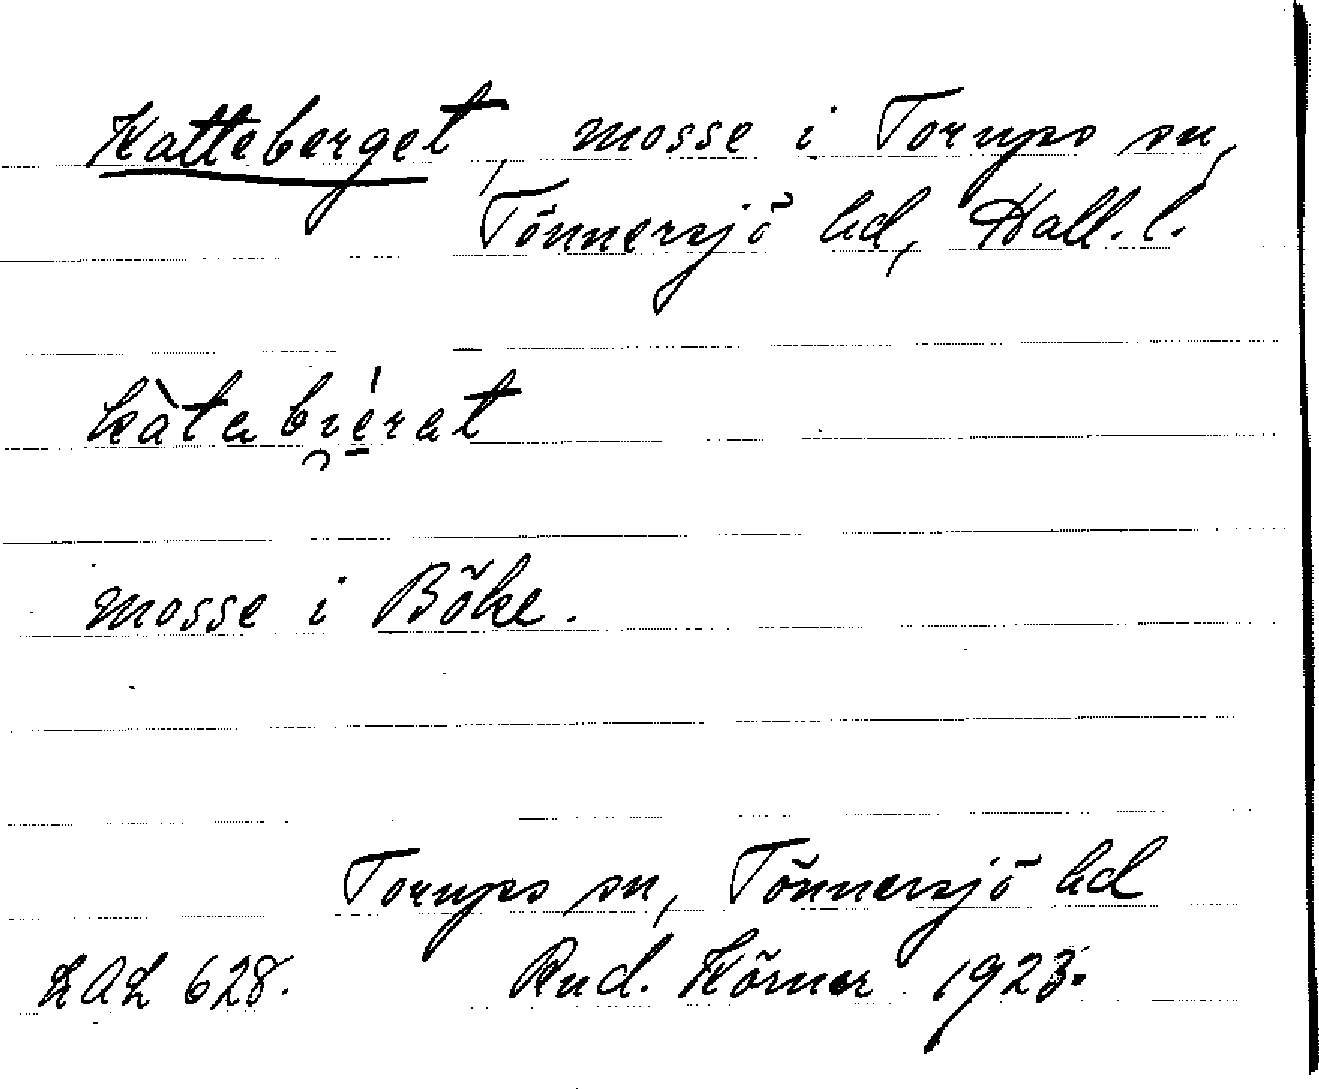 Katteberget, mosse i Torups sn,
Tönnersjö hd, Hall. l.
kàtabi̯érat
mosse i Böke.
Torups sn, Tönnersjö hd
LAL 628. Rud. Körner 1923.